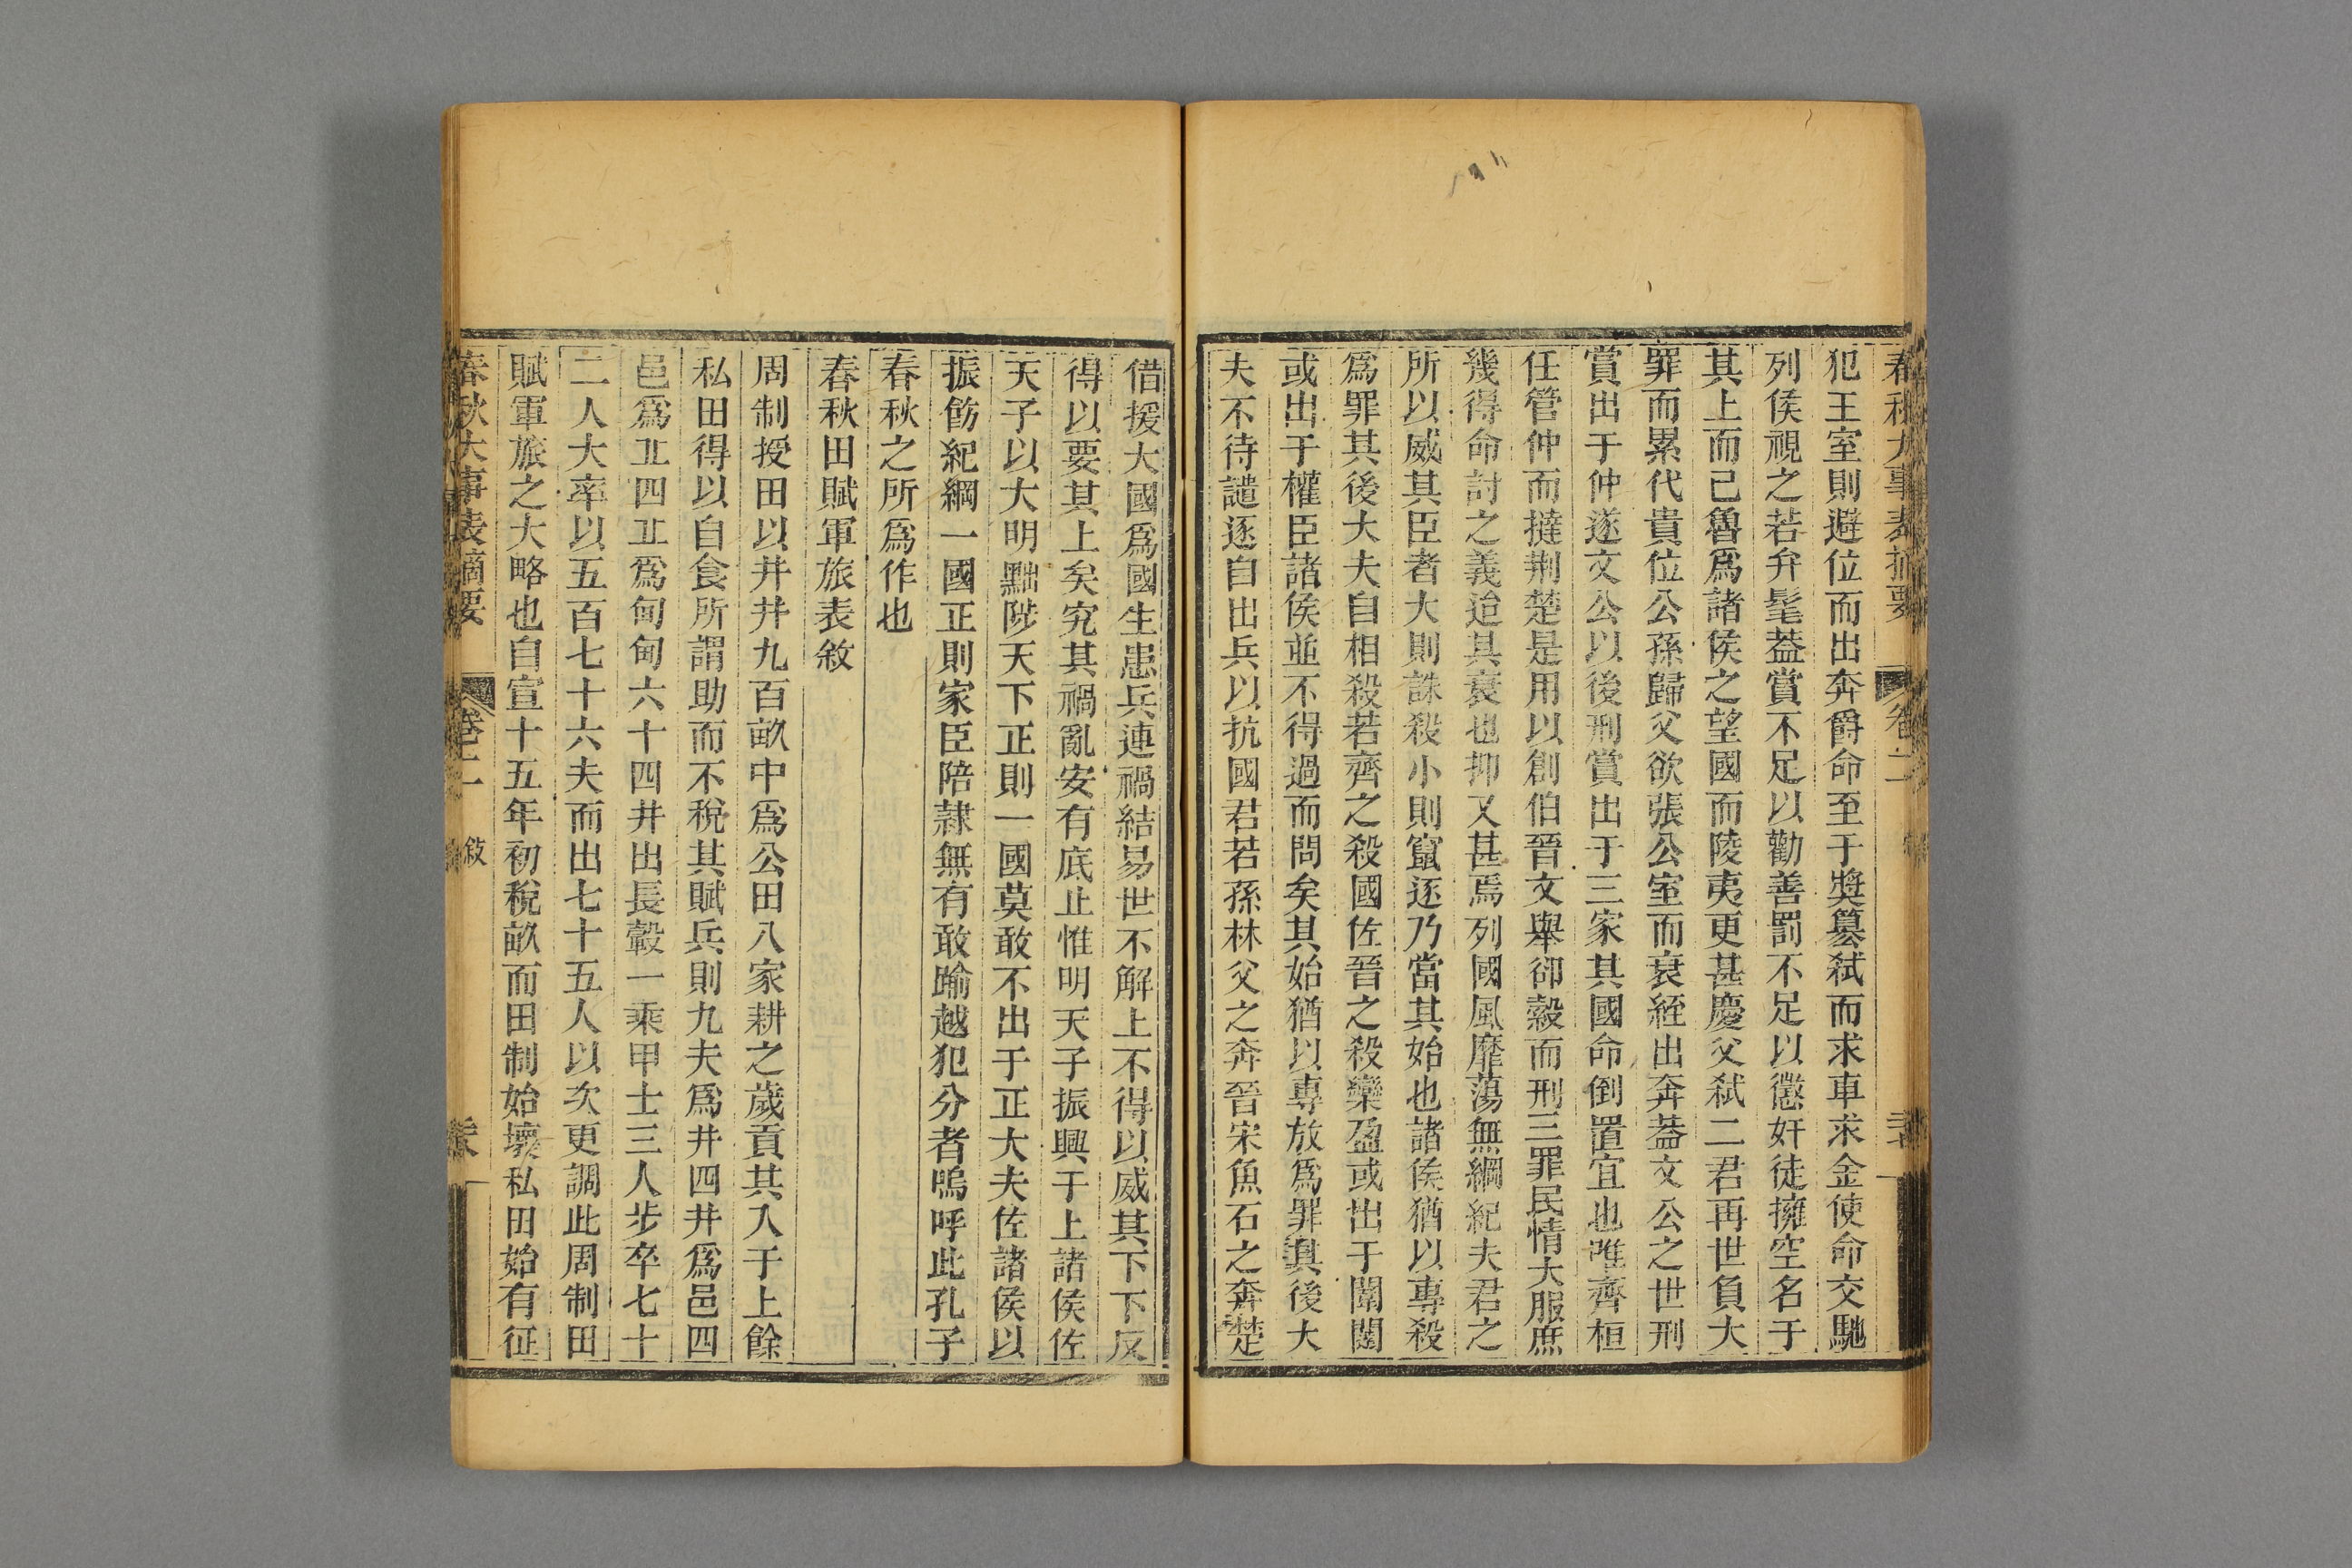 春秋大事表摘要 卷二
犯王室則避位而出奔爵命至于獎篡弑而求車求金使命交馳
列侯視之若弁髦葢賞不足以勸善罰不足以懲奸徒擁空名于
其上而已魯爲諸侯之望國而陵夷更甚慶父弑二君再世負大
罪而累代貴位公孫歸父欲張公室而衰絰出奔葢文公之世刑
賞出于仲遂文公以後刑賞出于三家其國命倒置宜也唯齊桓
任管仲而撻荆楚是用以創伯晉文舉郤縠而刑三罪民情大服庶
幾得命討之義迨其衰也抑又甚焉列國風靡蕩無綱紀夫君之
所以威其臣者大則誅殺小則竄逐乃當其始也諸侯猶以專殺
爲罪其後大夫自相殺若齊之殺國佐晉之殺欒盈或出于閨闥
或出于權臣諸侯並不得過而問矣其始猶以專放爲罪其後大
夫不待譴逐自出兵以抗國君若孫林父之奔晉宋魚石之奔楚
借援大國爲國生患兵連禍結易世不解上不得以威其下下反
得以要其上矣究其禍亂安有底止惟明天子振興于上諸侯佐
天子以大明黜陟天下正則一國莫敢不出于正大夫佐諸侯以
振飭紀綱一國正則家臣陪隷無有敢踰越犯分者嗚呼此孔子
春秋之所爲作也
春秋田賦軍旅表敘
周制授田以井井九百畝中爲公田八家耕之歲貢其入于上餘
私田得以自食所謂助而不稅其賦兵則九夫爲井四井爲邑四
邑爲丠四丠爲甸甸六十四井出長轂一乘甲士三人步卒七十
二人大率以五百七十六夫而出七十五人以次更調此周制田
賦軍旅之大略也自宣十五年初稅畝而田制始壞私田始有征
春秋大事表摘要 卷二 敘